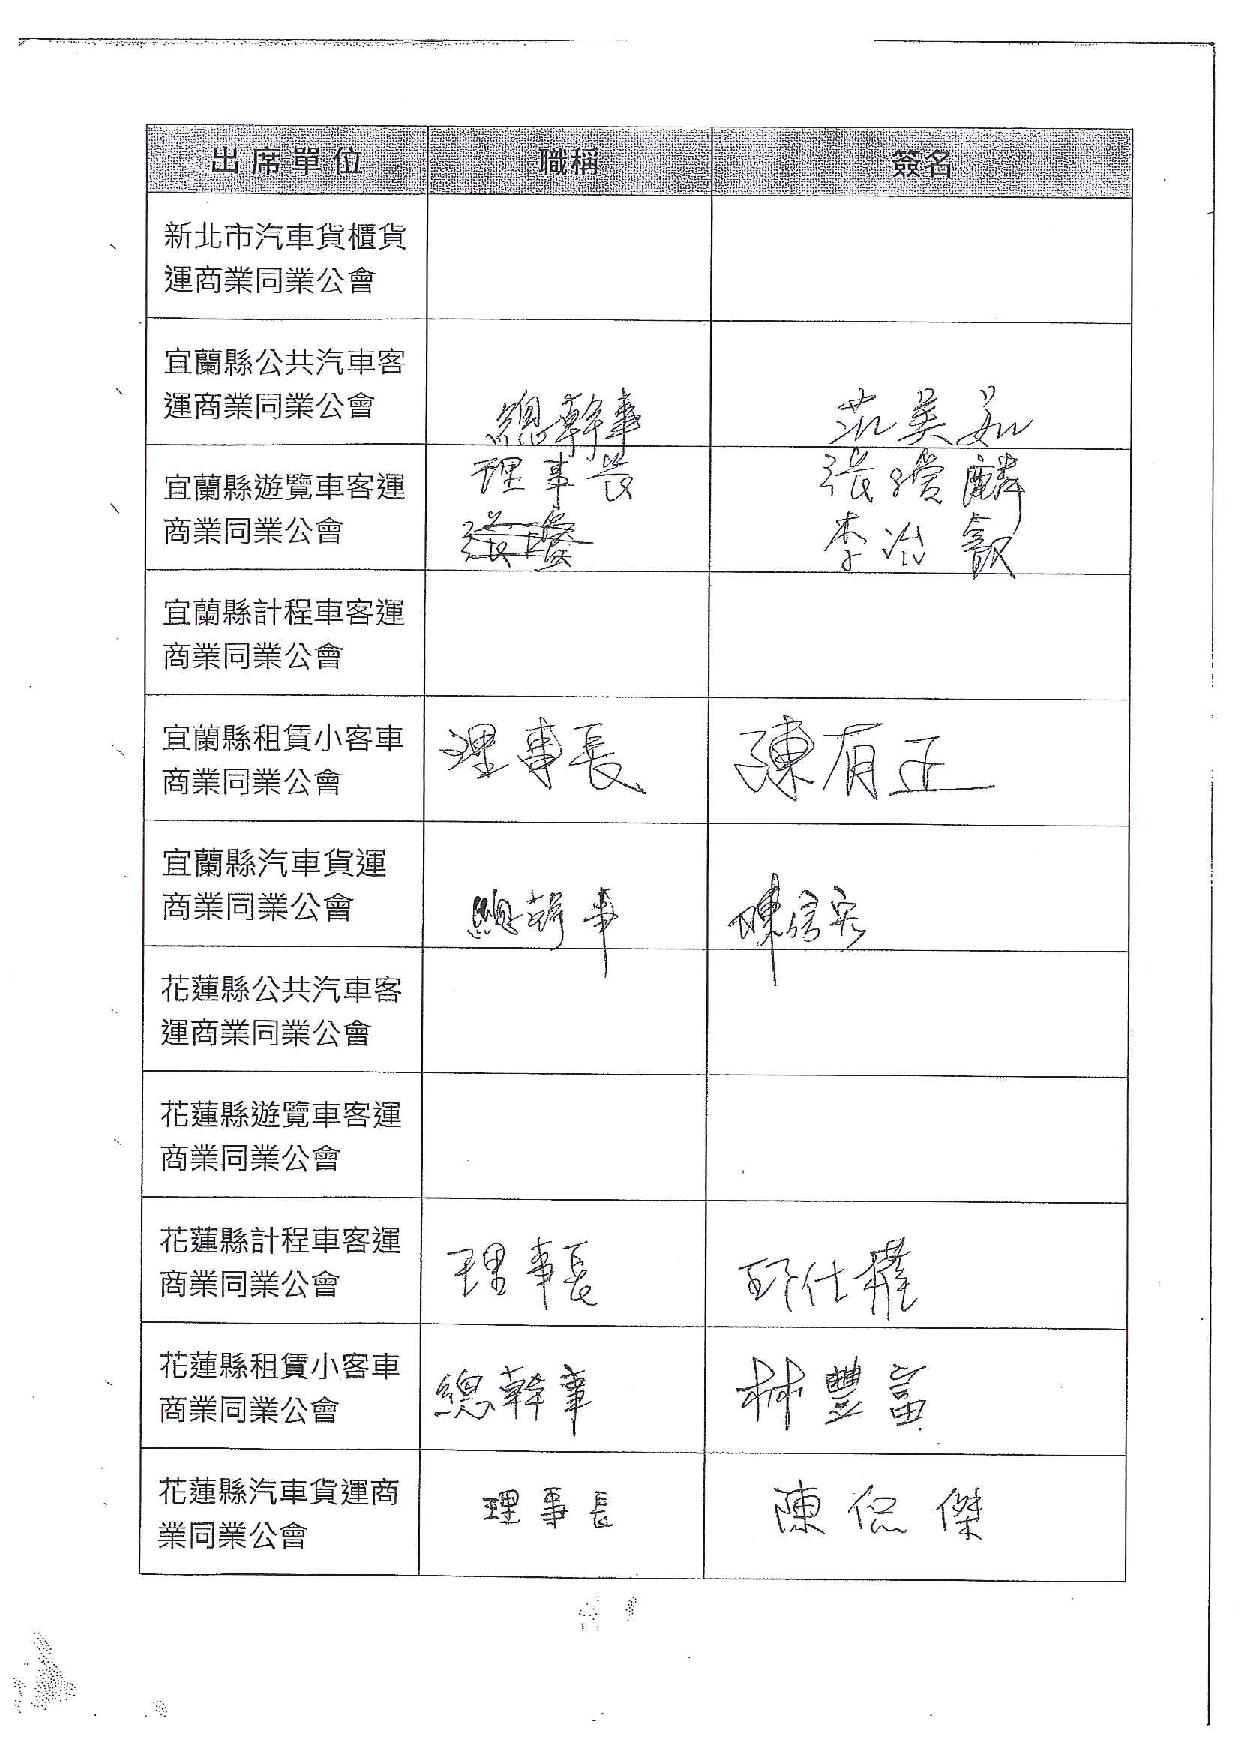 出席單位 職稱 簽名
新北市汽車貨櫃貨
運商業同業公會
宜蘭縣公共汽車客
運商業同業公會 總幹事 范美如
理事長
宜蘭縣遊覽車客運
商業同業公會
宜蘭縣計程車客運
商業同業公會
宜蘭縣租賃小客車 理事長 陳有正
商業同業公會
宜蘭縣汽車貨運
商業同業公會 總幹事 陳信宏
花蓮縣公共汽車客
運商業同業公會
花蓮縣遊覽車客運
商業同業公會
花蓮縣計程車客運 理事長
商業同業公會
花蓮縣租賃小客車 總幹事 林豐富
商業同業公會
花蓮縣汽車貨運商 理事長 陳侃傑
業同業公會